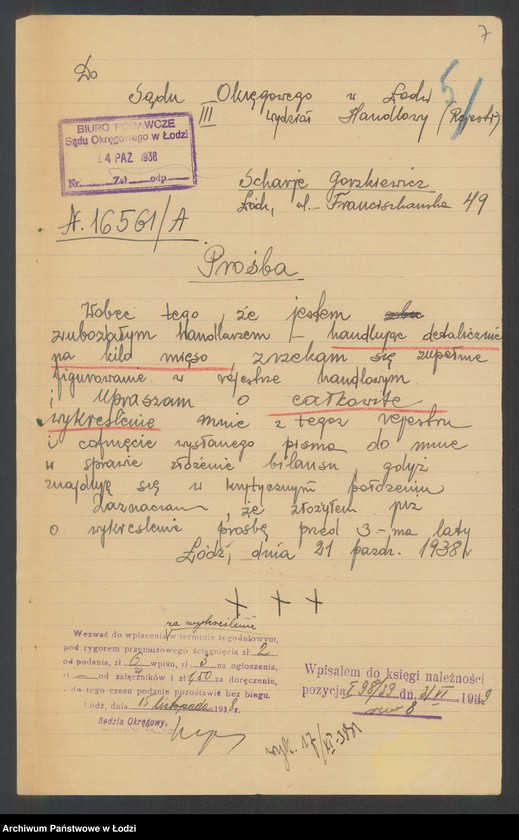 7
Do
Sądu Okręgowego w Łodzi
III Wydział Handlowy (Rejestr)
5/
BIURO PODAWCZE
Sądu Okręgowego w Łodzi
24 PAZ 1938
Nr. Zał odp
Scharje Gorzkiewicz
Łódź, ul. Franciszkańska 49
A. 16561/A
Prośba
Wobec tego, że jestem
zubożałym handlarzem – handlując detalicznie
na kilo mięso zrzekam się zupełnie
figurowanie w rejestrze handlowym
i Upraszam o całkowite
wykreślenie mnie z tegoż rejestru
i cofnięcie wysłanego pisma do mnie
w sprawie złożenie bilansu gdyż
znajduję się w krytycznym położeniu
Zaznaczam, że złożyłem już
o wykreślenie prośbę przed 3-ma laty
Łódź, dnia 21 pazdr. 1938 r
+ + +
za wykreślenie
Wezwać do wpłacenia w terminie tygodniowym,
pod rygorem przymusowego ściągnięcia zł 2
od podania, zł 6 wpisu, zł 3 na ogłoszenia,
zł — od załączników i zł 1,50 za doręczenie,
do tego czasu podanie pozostawić bez biegu.
Łódź, dnia 15 listopada 1938 r.
Sędzia Okręgowy.
Wpisałem do księgi należności
pozycja I 98/39 dn. 21/VI 1939
wyk. 17/XI 38
Archiwum Państwowe w Łodzi